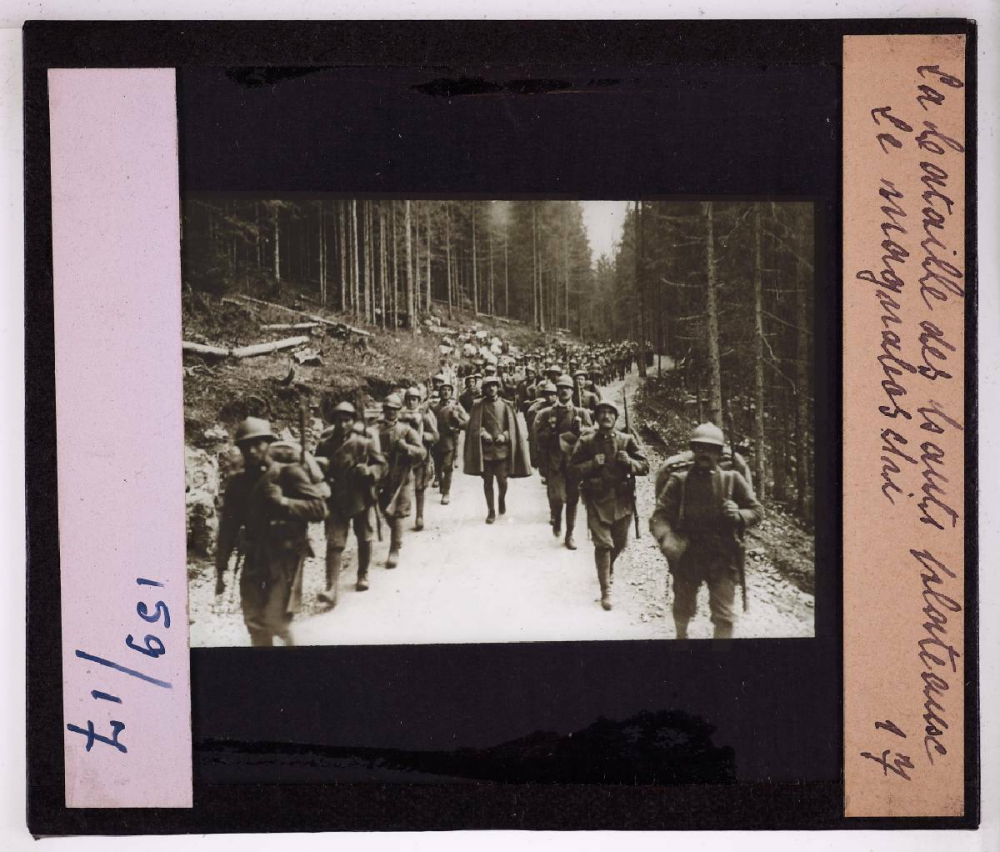 La bataille des hauts plateaux
Le magnaboschi
17
159/17